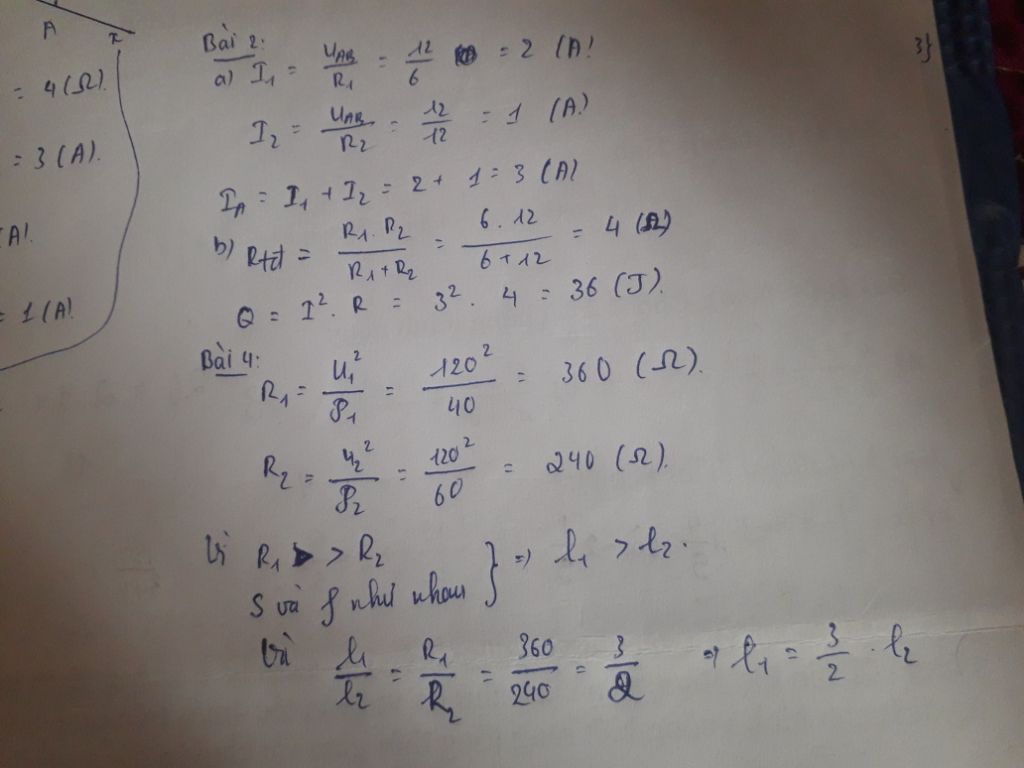 A
= 4 (Ω).
= 3 (A).
(A).
= 1 (A).
Bài 2:
a) I₁ = U_AB/R₁ = 12/6 = 2 (A)
I₂ = U_AB/R₂ = 12/12 = 1 (A)
I_A = I₁ + I₂ = 2 + 1 = 3 (A)
b) R_tđ = R₁.R₂/R₁+R₂ = 6.12/6+12 = 4 (Ω)
Q = I². R = 3². 4 = 36 (J).
Bài 4:
R₁ = U₁²/P₁ = 120²/40 = 360 (Ω).
R₂ = U₂²/P₂ = 120²/60 = 240 (Ω).
Vì R₁ > R₂
S và ρ như nhau } => l₁ > l₂.
Và l₁/l₂ = R₁/R₂ = 360/240 = 3/2 => l₁ = 3/2 . l₂
3}